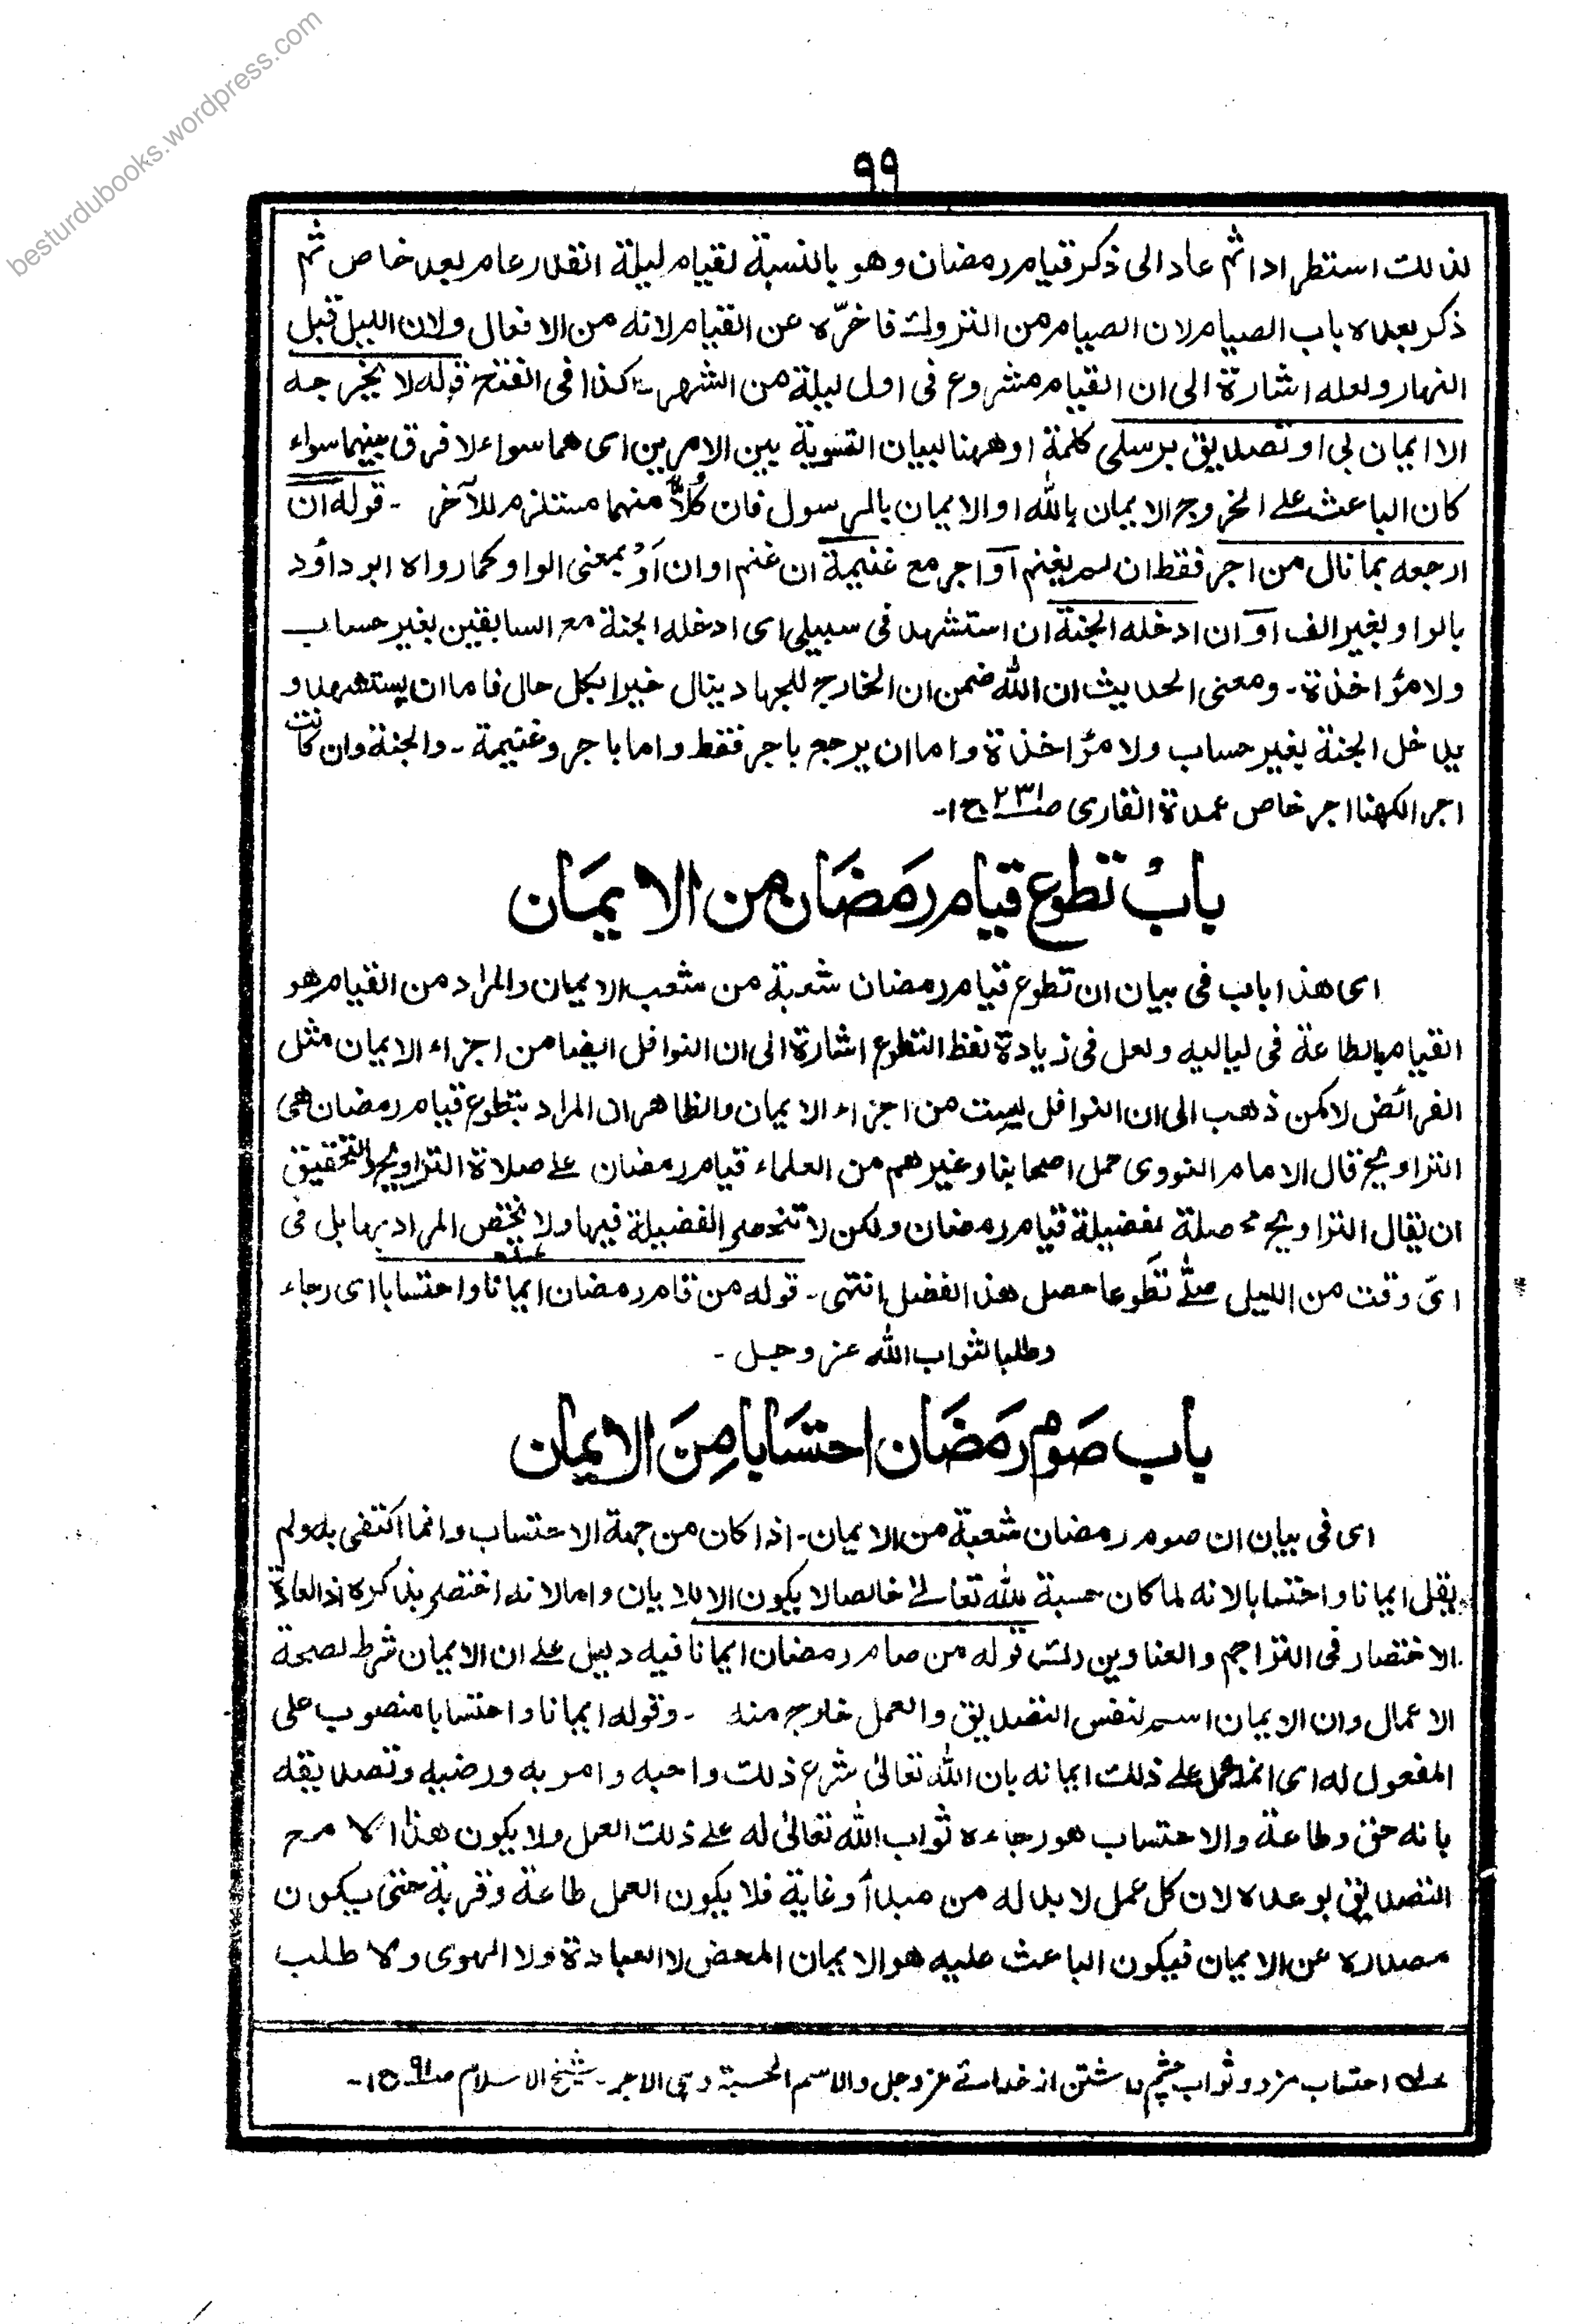 besturdubooks.wordpress.com
۹۹
لذلك استطرادا ثم عاد الى ذكر قيام رمضان وهو بالنسبة لقيام ليلة القدر عام بعد خاص ثم
ذكر بعده باب الصيام لان الصيام من التروك فاخّره عن القيام لانه من الافعال ولان الليل قبل
النهار ولعله اشارة الى ان القيام مشروع فى اول ليلة من الشهر كذا فى الفتح قوله لا يخرجه
الا ايمان بى او تصديق برسلى كلمة او ههنا لبيان التسوية بين الامرين اى هما سواء لا فرق بينهما سواء
كان الباعث على الخروج الايمان بالله او الايمان بالرسول فان كُلاًّ منهما مستلزم للآخر - قوله ان
ارجعه بما نال من اجر فقط ان لم يغنم او اجر مع غنيمة ان غنم او ان اَوْ بمعنى الواو كما رواه ابو داؤد
بالواو بغير الف او ان ادخله الجنة ان استشهد فى سبيلى اى ادخله الجنة مع السابقين بغير حساب
ولا مؤاخذة - ومعنى الحديث ان الله ضمن ان الخارج للجهاد ينال خيرا بكل حال فاما ان يستشهد و
يدخل الجنة بغير حساب ولا مؤاخذة واما ان يرجع باجر فقط واما باجر وغنيمة - والجنة وان كانت
اجرا لكنها اجر خاص عمدة القارى صـ۲۳۱ ج۱-
بابُ تطوع قيام رمَضَان من الايمَان
اى هذا باب فى بيان ان تطوع قيام رمضان شعبة من شعب الايمان والمراد من القيام هو
القيام بالطاعة فى لياليه ولعل فى زيادة لفظ التطوع اشارة الى ان النوافل ايضا من اجزاء الايمان مثل
الفرائض لا كمن ذهب الى ان النوافل ليست من اجزاء الايمان والظاهر ان المراد بتطوع قيام رمضان هى
التراويح قال الامام النووى حمل اصحابنا وغيرهم من العلماء قيام رمضان على صلاة التراويح والتحقيق
ان يقال التراويح محصلة لفضيلة قيام رمضان ولكن لا تنحصر الفضيلة فيها ولا يختص المراد بها بل فى
اىّ وقت من الليل صلّى تطَوعا حصل هذا الفضل انتهى - قوله من قام رمضان ايمانا واحتسابا اى رجاء
وطلبا لثواب الله عز وجل -
باب صَوم رَمَضَان احتسَابا مِنَ الايمان
اى فى بيان ان صوم رمضان شعبة من الايمان - اذا كان من جهة الاحتساب وانما اكتفى به ولم
يقل ايمانا واحتسابا لانه لما كان حسبة لله تعالى خالصا لا يكون الا للايمان واما لانه اختصر بذكره اذ العادة
الاختصار فى التراجم والعناوين قوله من صام رمضان ايمانا فيه دليل على ان الايمان شرط لصحة
الاعمال وان الايمان اسم لنفس التصديق والعمل خارج منه - وقوله ايمانا واحتسابا منصوب على
المفعول له اى انما حمل على ذلك ايمانه بان الله تعالى شرع ذلك واحبه وامر به ورضيه وتصديقه
بانه حق وطاعة والاحتساب هو رجاءه ثواب الله تعالى له على ذلك العمل ولا يكون هذا الا مع
التصديق بوعده لان كل عمل لا بد له من مبدأ وغاية فلا يكون العمل طاعة وقربة حتى يكون
مصدره عن الايمان فيكون الباعث عليه هو الايمان المحض لا العبادة ولا الهوى ولا طلب
احتساب مزد وثواب چشم داشتن از خدائے عز وجل والاسم الحسبة وهى الاجر - شيخ الاسلام صـ۹۱ ج۱-